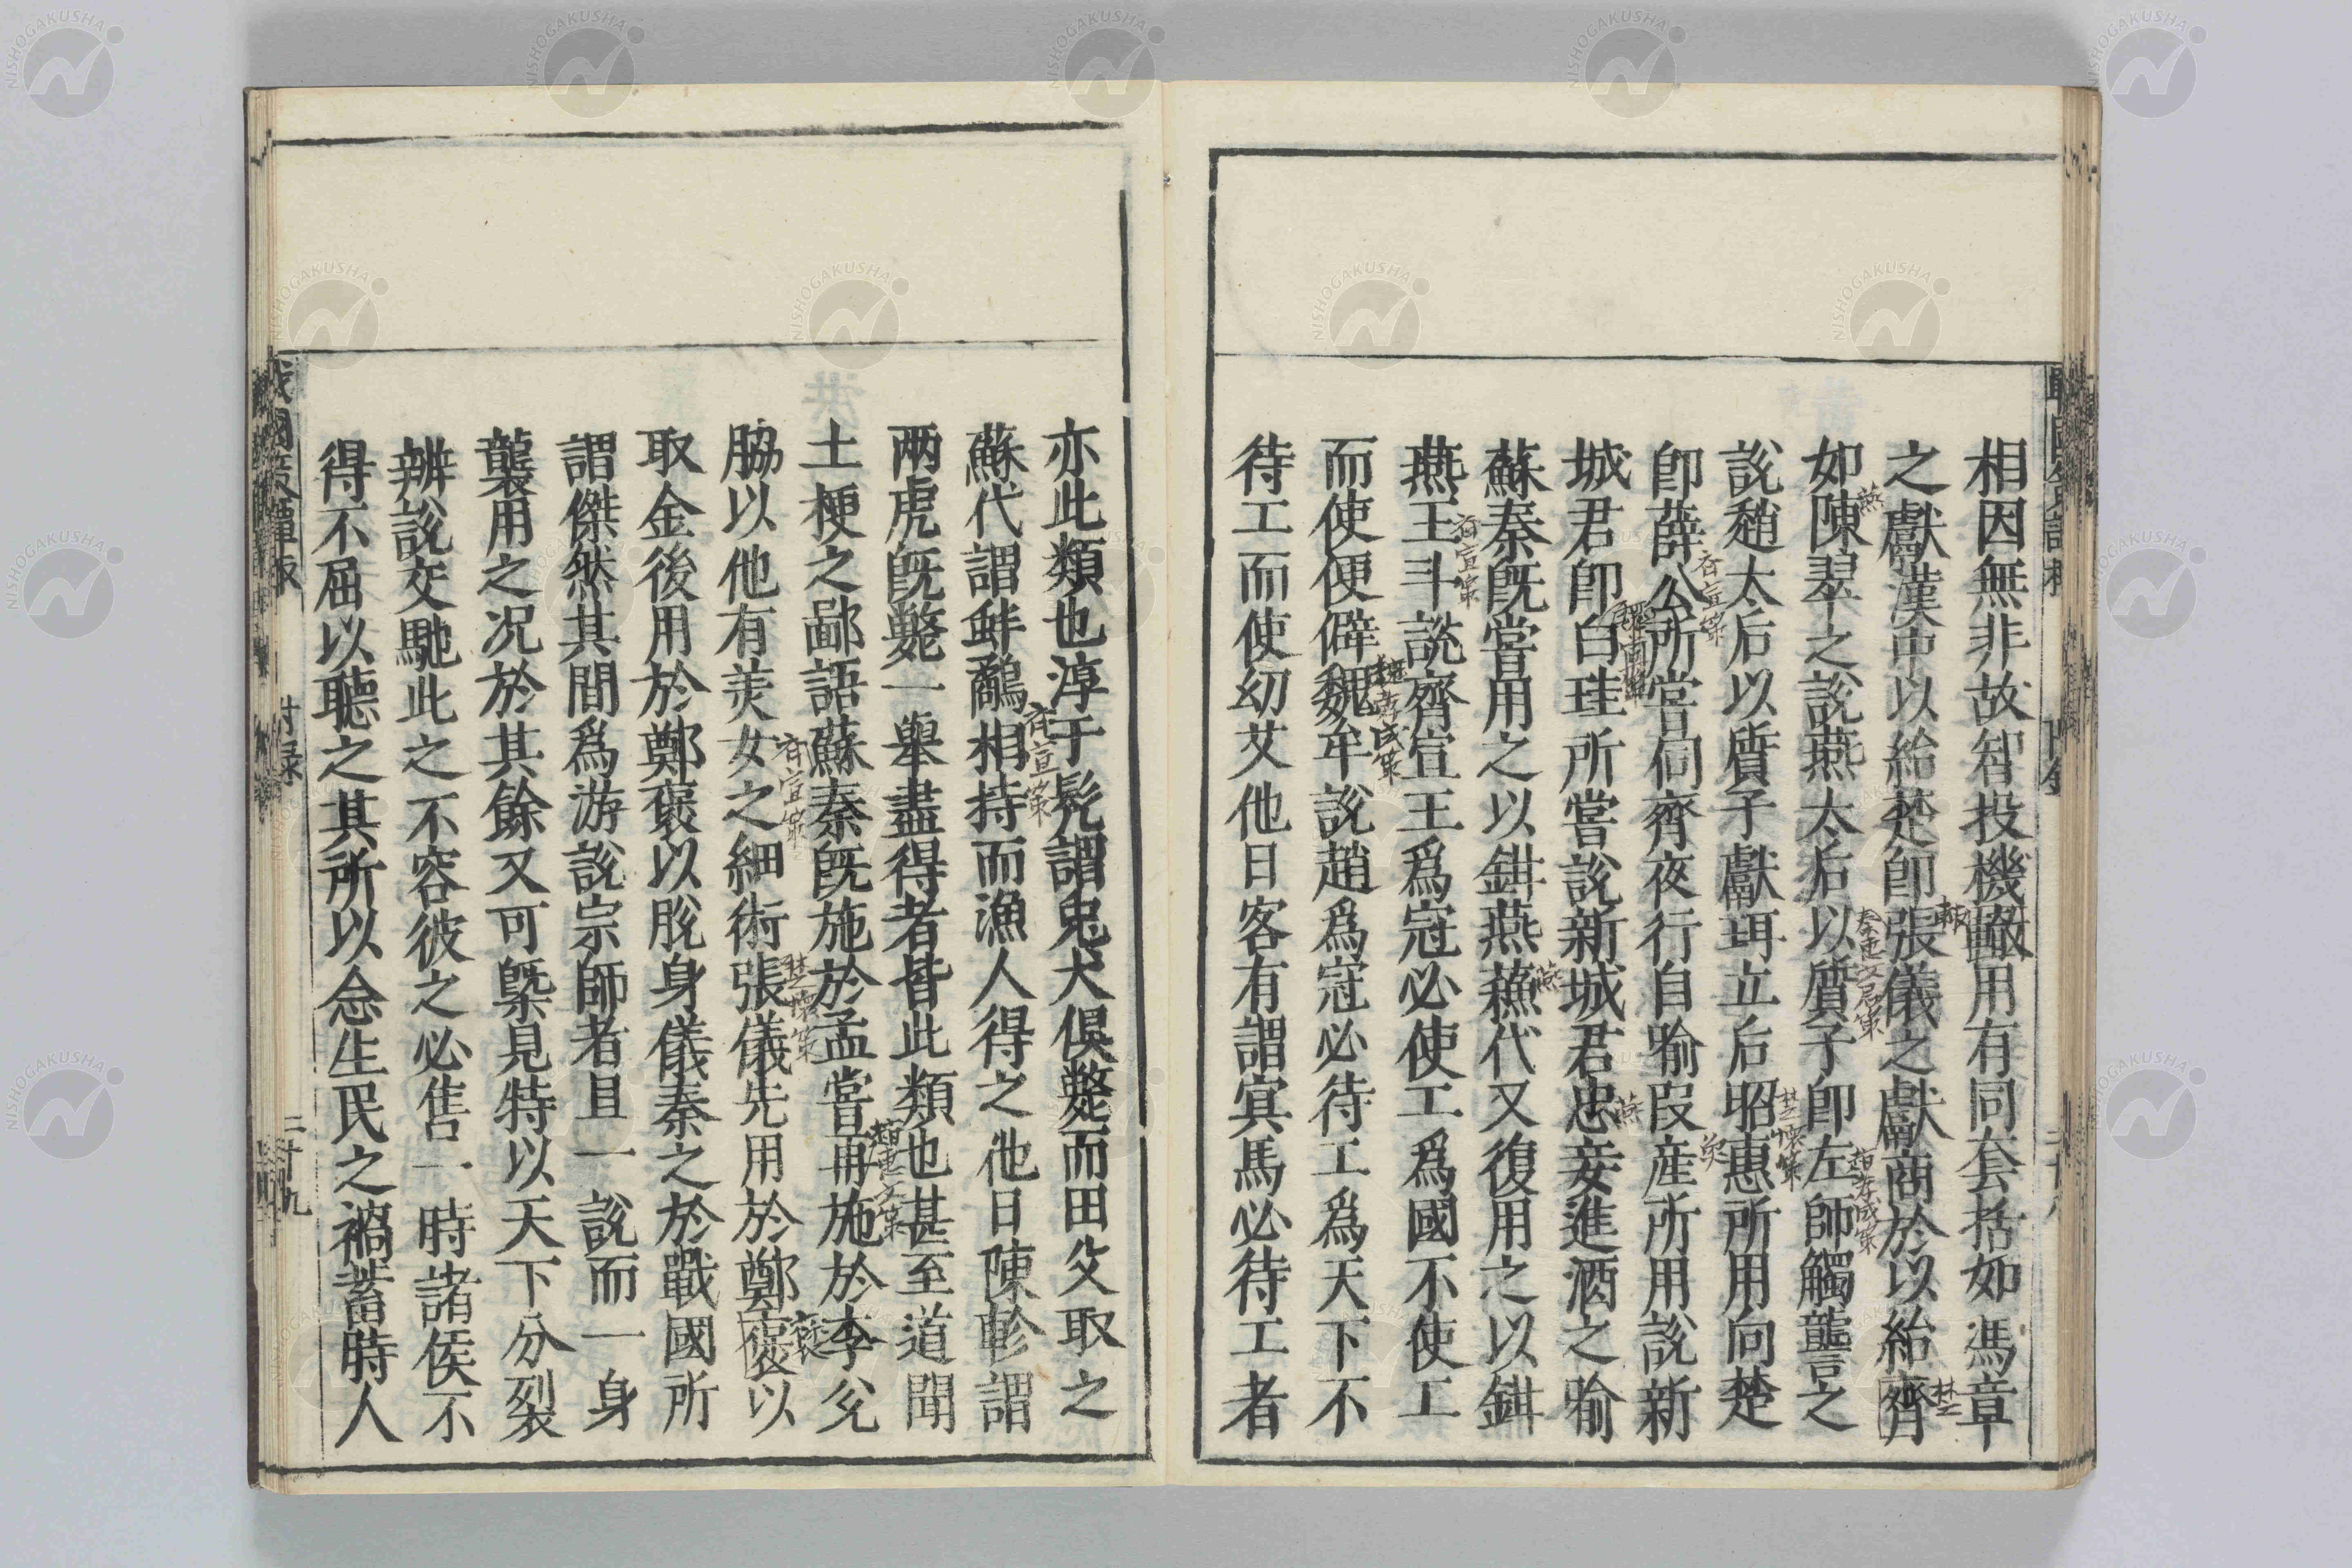 相因無非故智投機颐用有同套括如馮章
之獻漢中以紿楚卽張儀之獻商於以紿齊
如陳翠之說燕太后以質子卽左師觸讋之
說趙太后以質子獻珥立后昭惠所用向楚
卽薛公所嘗伺齊夜行自喻叚産所用說新
城君卽白珪所嘗說新城君忠妾進酒之喻
蘇秦旣嘗用之以鉗燕蘓代又復用之以鉗
燕王斗說齊宣王爲冠必使工爲國不使工
而使便僻魏牟說趙爲冠必待工爲天下不
待工而使幼艾他日客有謂寘馬必待工者
亦此類也淳于髡謂兎犬俱斃而田父取之
蘇代謂蚌鷸相持而漁人得之他日陳軫謂
兩虎旣斃一舉盡得者皆此類也甚至道聞
土梗之鄙語蘇秦旣施於孟嘗再施於李兊
脇以他有美女之細術張儀先用於鄭褏以
取金後用於鄭褏以脫身儀秦之於戰國所
謂傑然其間爲游說宗師者且一說而一身
襲用之况於其餘又可槩見特以天下分裂
辨說交馳此之不容彼之必售一時諸侯不
得不屈以聽之其所以念生民之禍蓄時人
戰國策譚棷
附录
二十九
燕
齊宣策
齊宣策
魏
楚懷策
楚
燕
燕
齊宣策
齊宣策
楚懷策
趙惠文策
袞